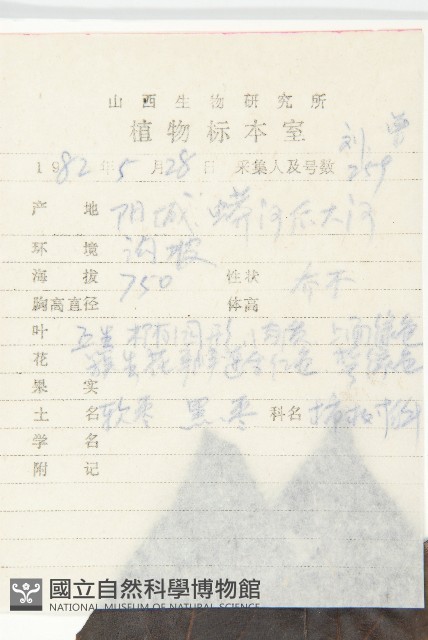 山西生物研究所
植物标本室
刘 曾
1982年5月28日 采集人及号数 259
产地 阳城 蟒河后大河
环境 沟坡
海拔 750 性状 乔木
胸高直径 体高
叶 互生 椭圆形 上面绿色
花 簇生 花 红色 萼绿色
果实
土名 软枣 黑枣 科名 柿树科
学名
附记
國立自然科學博物館
NATIONAL MUSEUM OF NATURAL SCIENCE